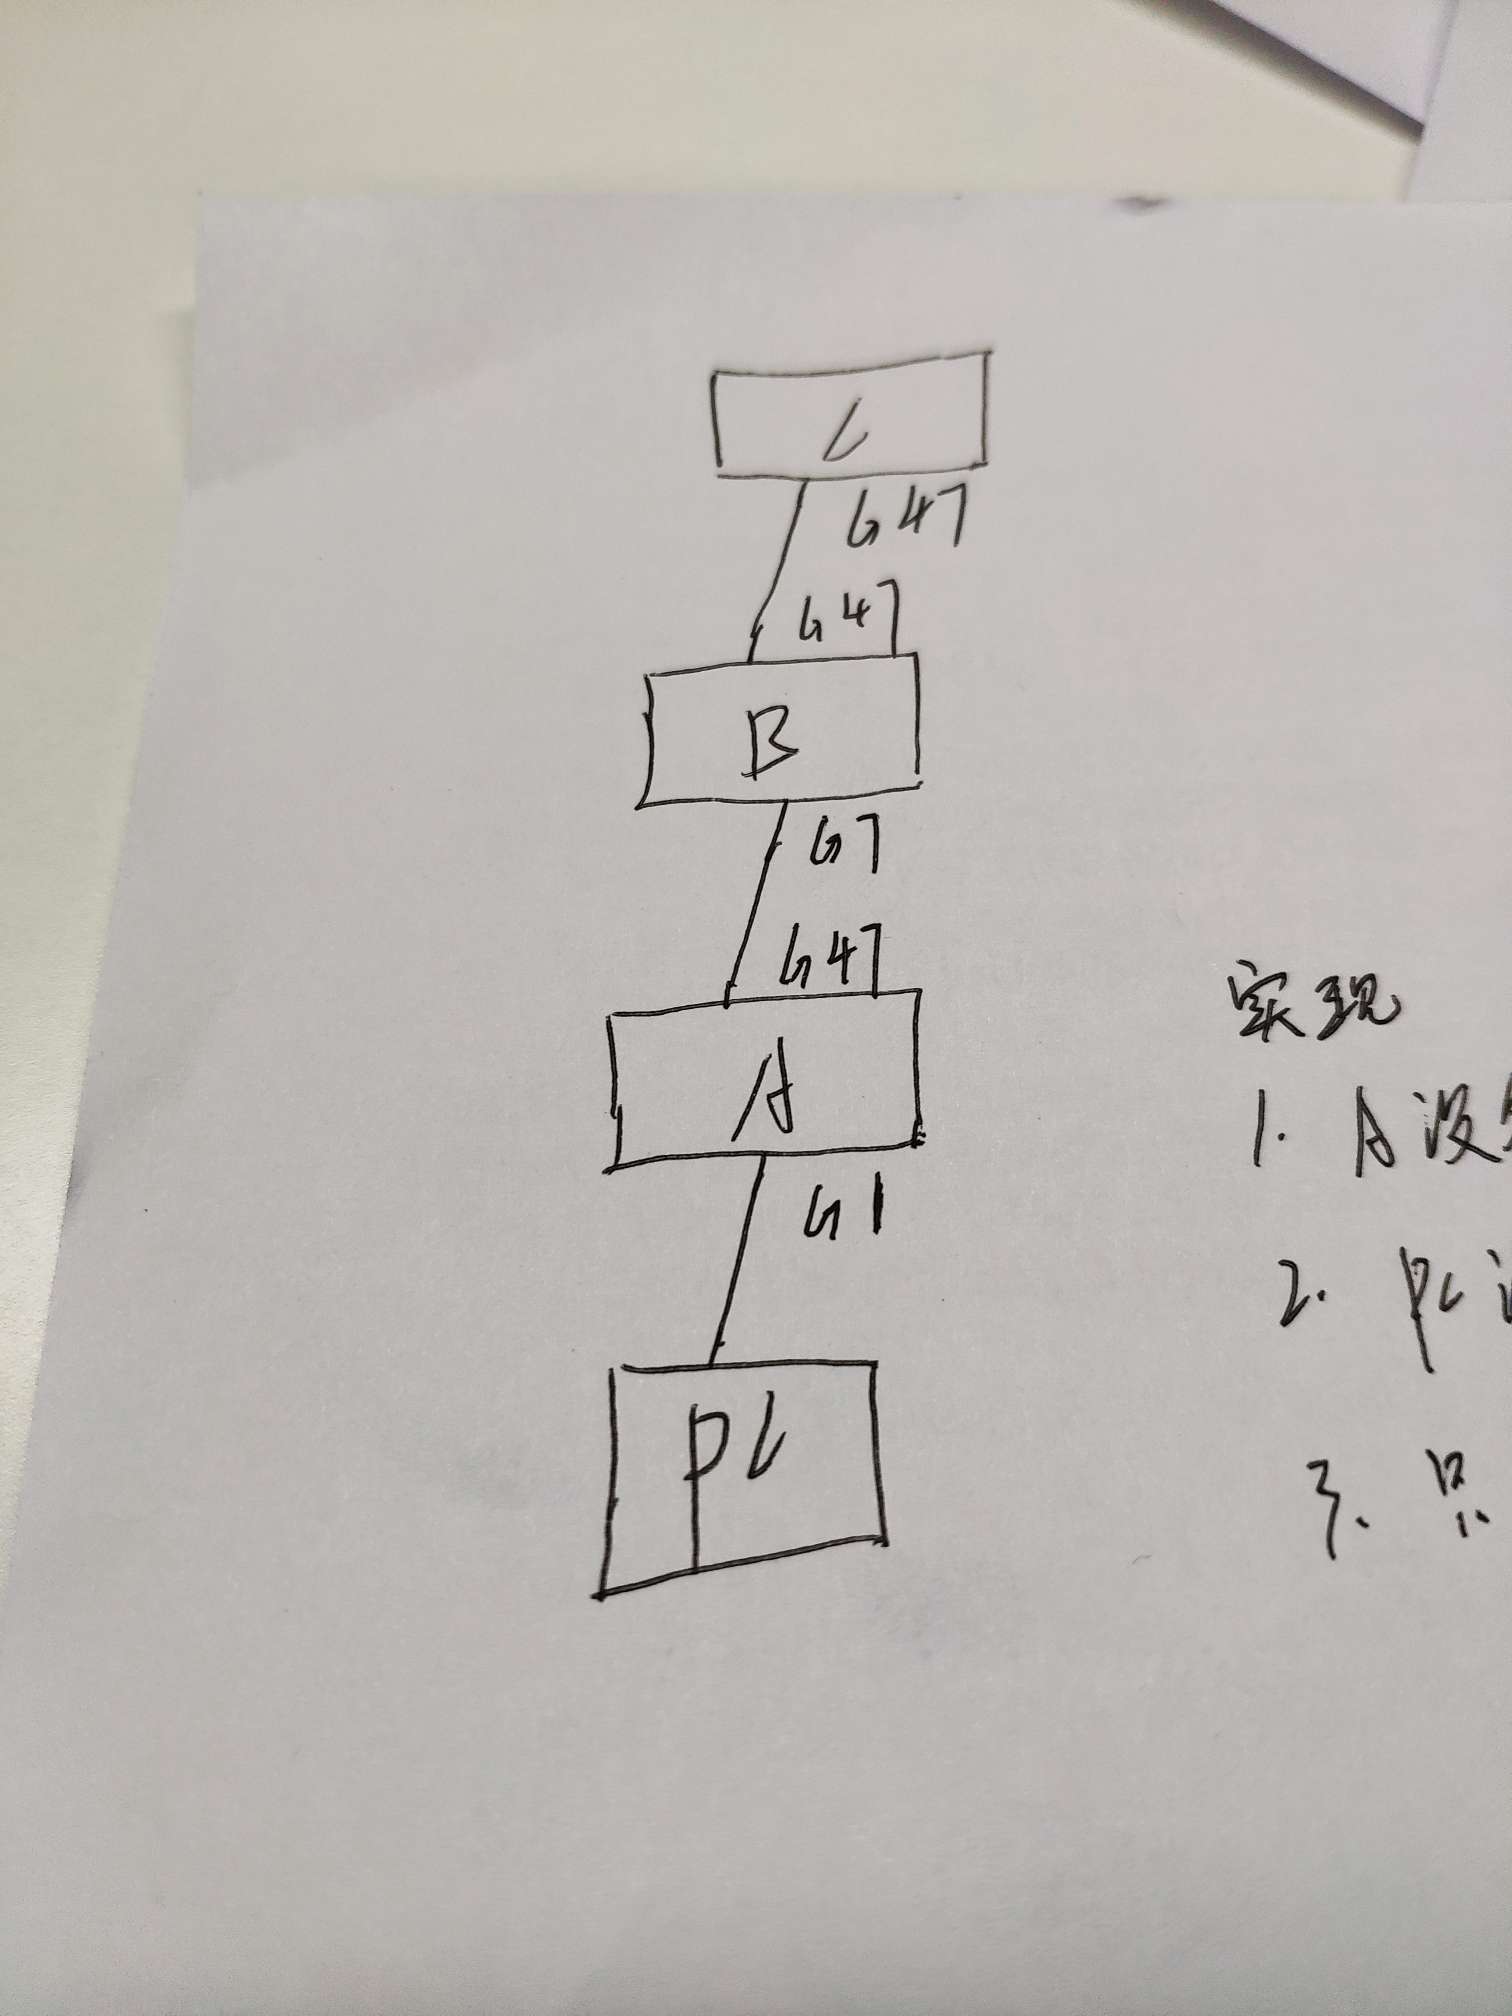 C
G47
G47
B
G7
G47
A
G1
PC
实现
1. A没
2. PC
3. 只